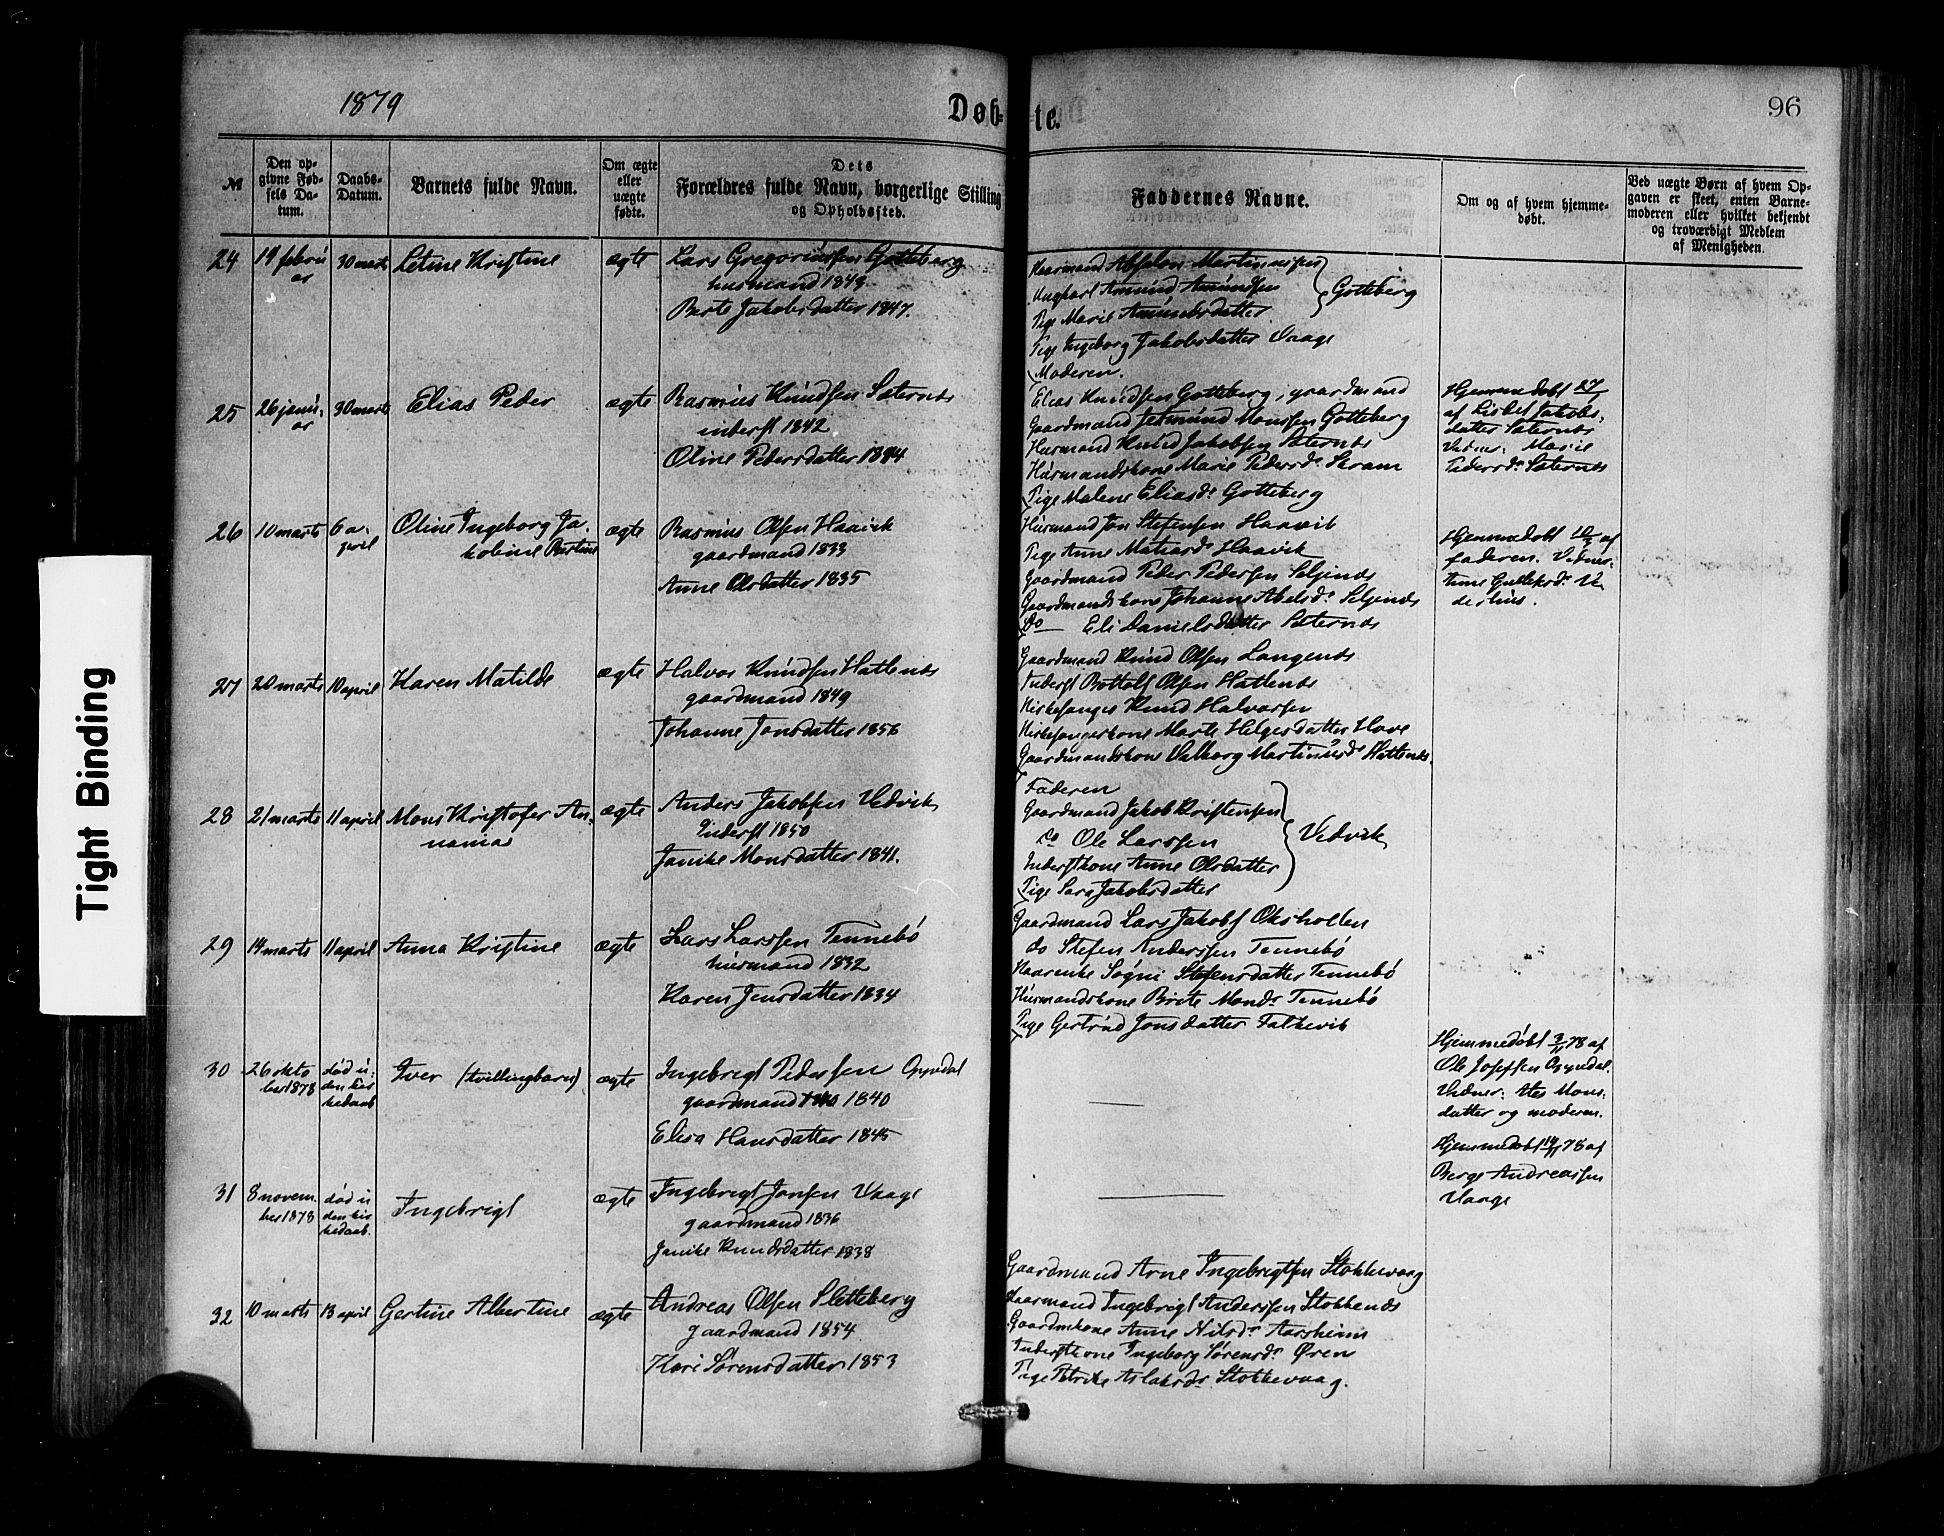 1879
Døb-te.
96
Tight Binding
№
Den op-
givne Fød-
sels Da-
tum.
Daabs-
Datum.
Barnets fulde Navn.
Om ægte
eller
uægte
fødte.
Dets
Forældres fulde Navn, borgerlige Stilling
og Opholdssted.
Faddernes Navne.
Om og af hvem hjemme-
døbt.
Ved uægte Børn af hvem Op-
gaven er skeet, enten Barne-
moderen eller hvilket bekjendt
og troværdigt Medlem
af Menigheden.
24
19 febru
ar
30 marts
Letine Kristine
ægte
Lars Gregoriussen Gotteberg
husmand 1843
Berte Jakobsdatter 1847.
Kaarmand Absalon Martinussen
Ungkarl Amund Amundsen
Pige Marie Amundsdatter
Gotteberg
Pige Ingeborg Jakobsdatter Vaage
Moderen.
25
26 janu-
ar
30 marts
Elias Peder
ægte
Rasmus Knudsen Sæternes
inderst 1842
Oline Pedersdatter 1844
Elias Knudsen Gotteberg, gaardmand
Gaardmand Jetmund Monssen Gotteberg
Husmand Knud Jakobsen Sæternes
Husmandskone Marie Pedersdr Skram
Pige Malene Eliasdr Gotteberg
Hjemmedøbt 27/1
af Lisbet Jakobs-
datter Sæternes
Vidner: Marie
Pedersdr Sæternes
26
10 marts
6 a-
pril
Oline Ingeborg Ja-
kobine Bastine
ægte
Rasmus Olsen Haavik
gaardmand 1833
Anne Olsdatter 1835
Husmand Jon Stefensen Haavik
Pige Anne Matiasdr Haavik
Gaardmand Peder Pedersen Seljenes
Gaardmandskone Johanne Abelsdr Seljenes
Do Eli Danielsdatter Sæternes
Hjemmedøbt 10/3 af
faderen. Vidner:
Anne Gulleksdr Ve
derhus.
27
20 marts
10 april
Karen Matilde
ægte
Halvor Knudsen Hatlenes
gaardmand 1849
Johanne Jonsdatter 1856
Gaardmand Knud Olsen Langenes
Inderst Bottolf Olsen Hatlenes
Kirkesanger Knud Halvorsen
Kirkesangerkone Marte Helgesdatter Hove
Gaardmandskone Valborg Martinusdr Hatlenes.
28
21 marts
11 april
Mons Kristofer An-
nanias
ægte
Anders Jakobsen Vedvik
Inderst 1850
Janike Monsdatter 1841.
Faderen
Gaardmand Jakob Kristensen
Do Ole Larssen
Inderstkone Anne Olsdatter
Pige Sara Jakobsdatter
Vedvik
29
14 marts
11 april
Anna Kristine
ægte
Lars Larssen Tennebø
husmand 1832
Karen Jensdatter 1834
Gaardmand Lars Jakobs Oksholen
do Stefen Anderssen Tennebø
Kaarenke Søgni Stefensdatter Tennebø
Husmandskone Brite Monsdr Tennebø
Pige Gertrud Jonsdatter Falkevik
30
26 okto
ber 1878
død u-
den kir
kedaab
Iver (tvillingbarn)
ægte
Ingebrigt Pedersen Osmdal
gaardmand 1840
Elisa Hansdatter 1845
Hjemmedøbt 3/11 78 af
Ole Josefsen
Vidner: Ates Mons-
datter og moderen.
31
8 novem-
ber 1878
død u
den kir
kedaab.
Ingebrigt
ægte
Ingebrigt Jonsen Vaage
gaardmand 1836
Janike Knudsdatter 1838
Hjemmedøbt 14/11 78 af
Berge Andreassen
Vaage
32
10 marts
13 april
Gertine Albertine
ægte
Andreas Olsen Sletteberg
gaardmand 1854
Kari Sørensdatter 1853
Gaardmand Arne Ingebrigtsen Stokkevaag
Kaarmand Ingebrigt Anderssen Stokkenes
Gaardmkone Anne Nilsdr Aarsheim
Inderstkone Ingeborg Sørensdr Øren
Pige Petrike Aslaksdr Stokkevaag.